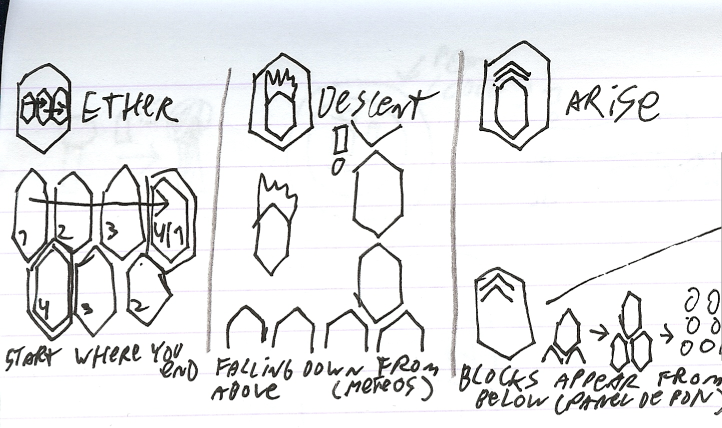 ETHER
1 2 3 4/1
4 3 2
START WHERE YOU
END
DESCENT
FALLING DOWN FROM
ABOVE (METEOS)
ARISE
BLOCKS APPEAR FROM
BELOW (PANEL DE PON)